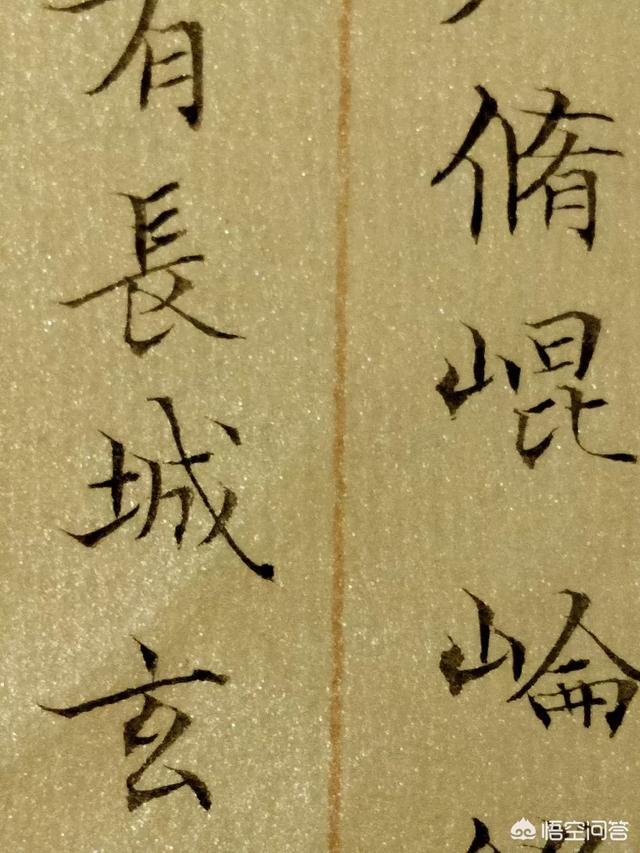 脩崐崘
有長城玄
悟空问答